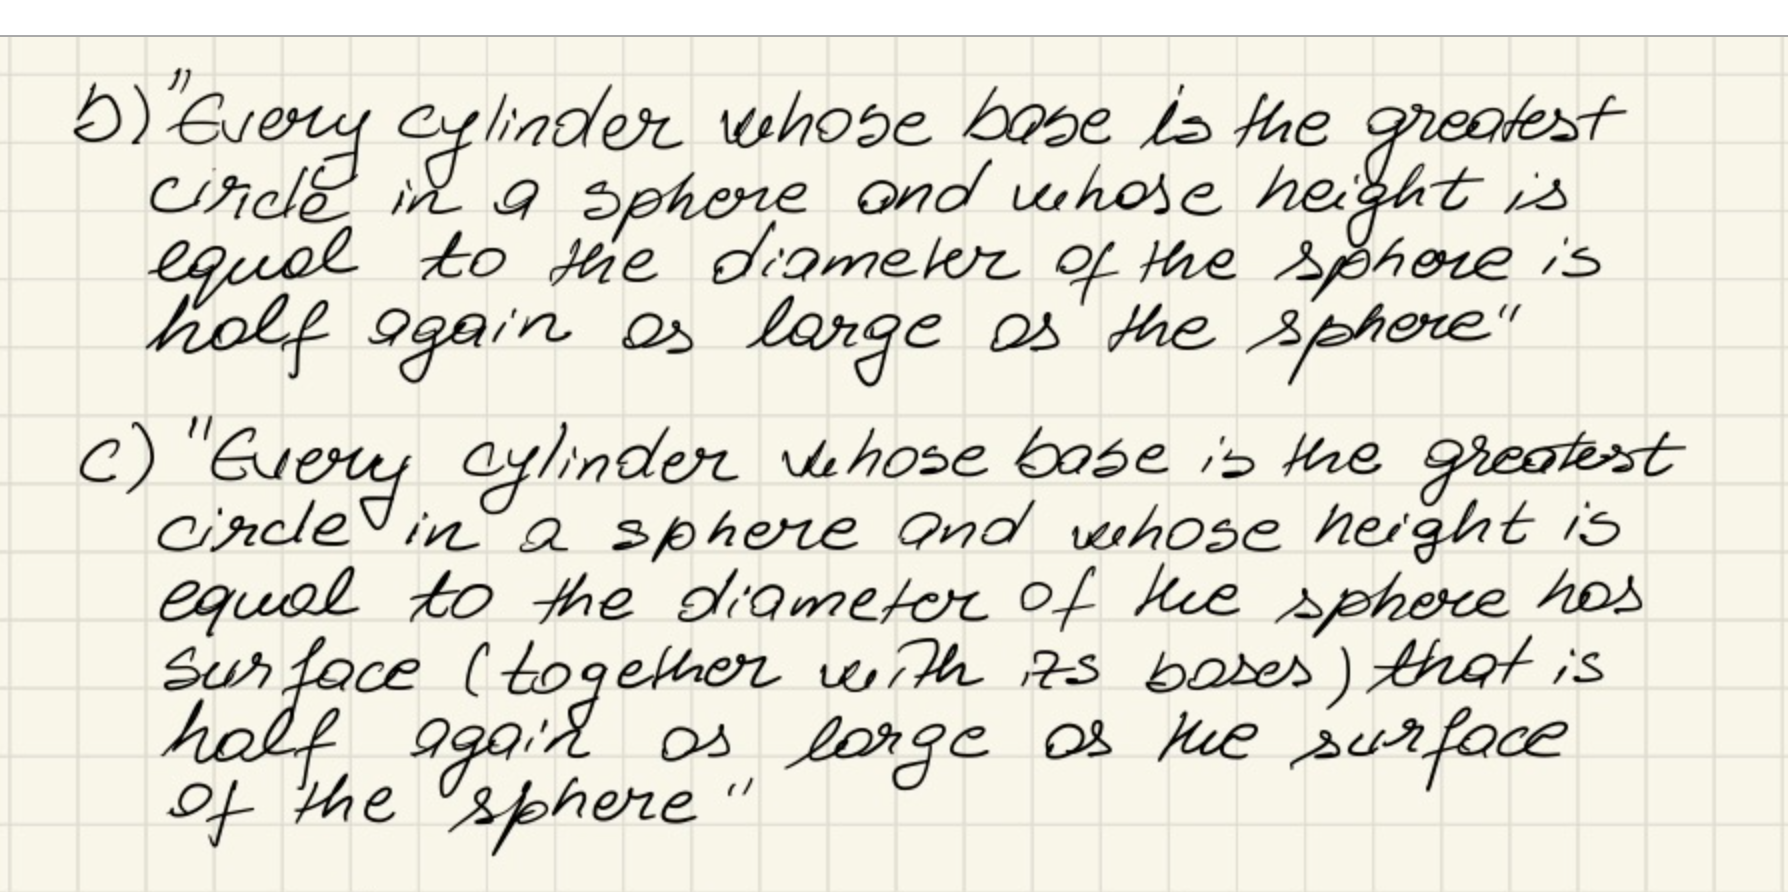 b) "Every cylinder whose base is the greatest
circle in a sphere and whose height is
equal to the diameter of the sphere is
half again as large as the sphere"
c) "Every cylinder whose base is the greatest
circle in a sphere and whose height is
equal to the diameter of the sphere has
surface (together with its bases) that is
half again as large as the surface
of the sphere"